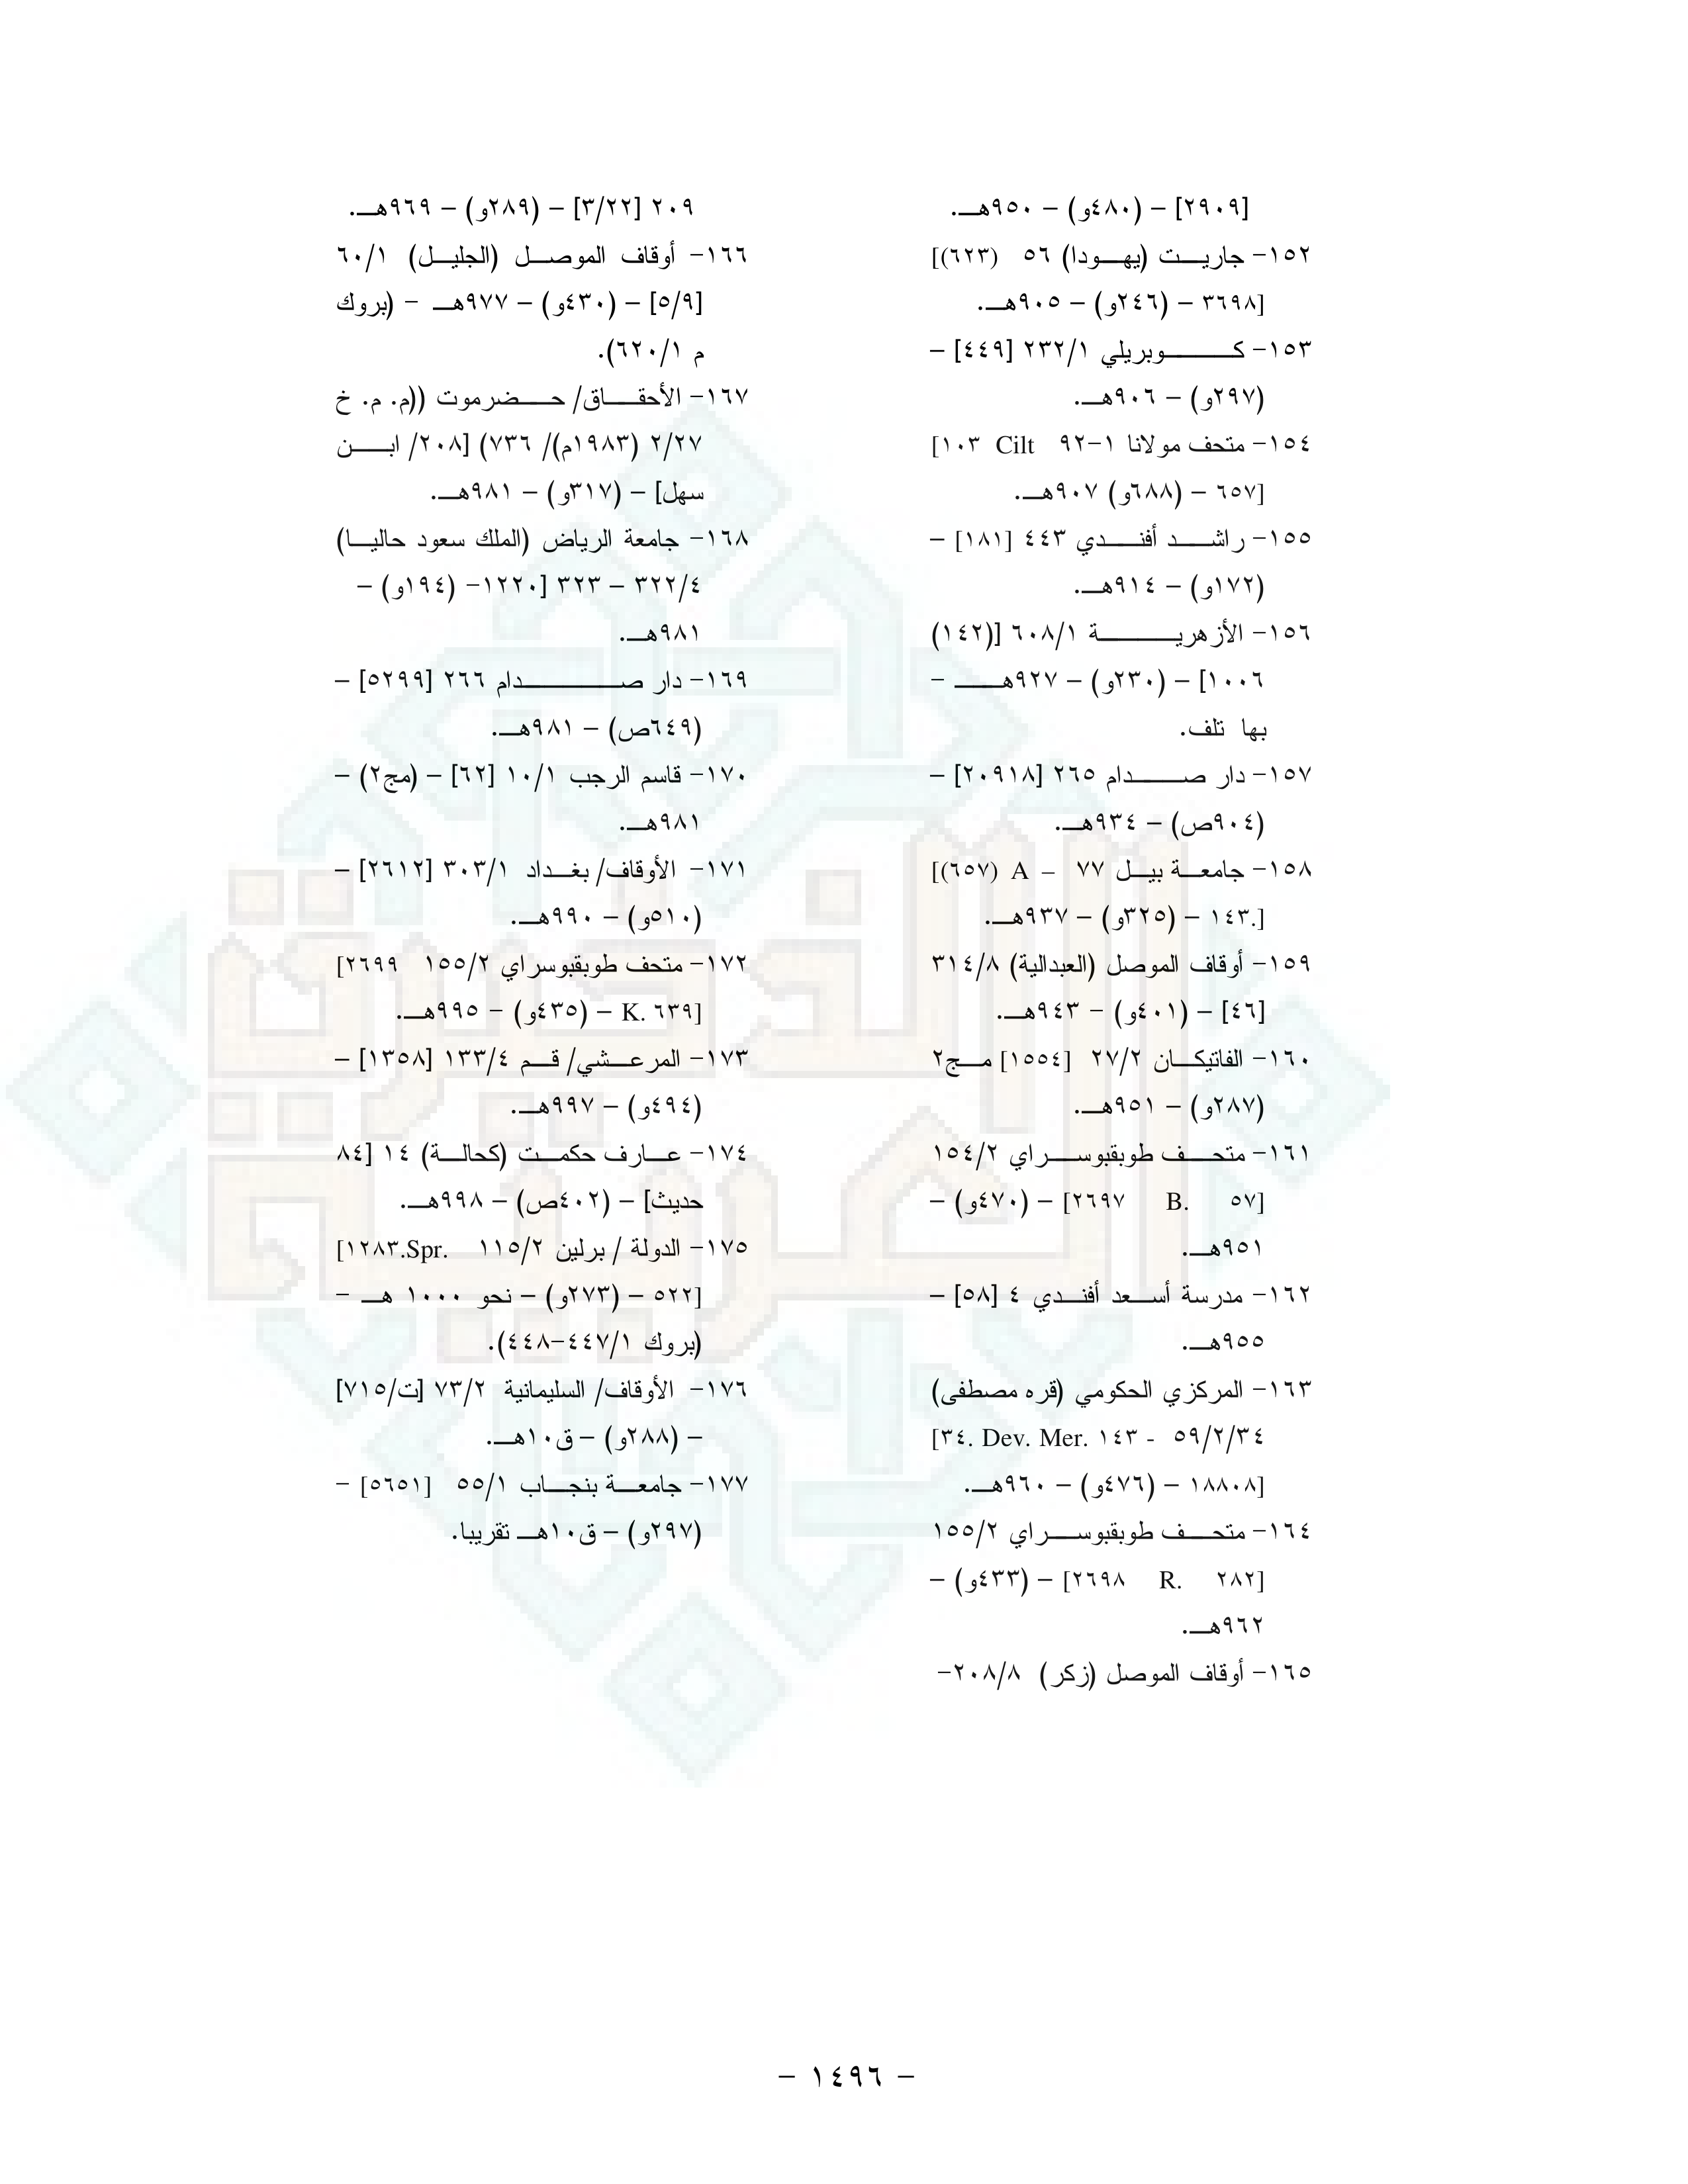 [٢٩٠٩] – (٤٨٠و) – ٩٥٠هـ.
١٥٢- جاريت (يهودا) ٥٦ [(٦٢٣)
٣٦٩٨] – (٢٤٦و) – ٩٠٥هـ.
١٥٣- كوبريلي ٢٣٢/١ [٤٤٩] –
(٢٩٧و) – ٩٠٦هـ.
١٥٤- متحف مولانا ١-٩٢ [١٠٣ Cilt
٦٥٧] – (٦٨٨و) ٩٠٧هـ.
١٥٥- راشد أفندي ٤٤٣ [١٨١] –
(١٧٢و) – ٩١٤هـ.
١٥٦- الأزهرية ٦٠٨/١ [(١٤٢)
١٠٠٦] – (٢٣٠و) – ٩٢٧هـ –
بها تلف.
١٥٧- دار صدام ٢٦٥ [٢٠٩١٨] –
(٩٠٤ص) – ٩٣٤هـ.
١٥٨- جامعة بييل ٧٧ – [(٦٥٧) A
١٤٣.] – (٣٢٥و) – ٩٣٧هـ.
١٥٩- أوقاف الموصل (العبدالية) ٣١٤/٨
[٤٦] – (٤٠١و) – ٩٤٣هـ.
١٦٠- الفاتيكان ٢٧/٢ [١٥٥٤] مج٢
(٢٨٧و) – ٩٥١هـ.
١٦١- متحف طوبقبوسراي ١٥٤/٢
[٢٦٩٧ B. ٥٧] – (٤٧٠و) –
٩٥١هـ.
١٦٢- مدرسة أسعد أفندي ٤ [٥٨] –
٩٥٥هـ.
١٦٣- المركزي الحكومي (قره مصطفى)
٥٩/٢/٣٤ - [٣٤. Dev. Mer. ١٤٣
١٨٨٠٨] – (٤٧٦و) – ٩٦٠هـ.
١٦٤- متحف طوبقبوسراي ١٥٥/٢
[٢٦٩٨ R. ٢٨٢] – (٤٣٣و) –
٩٦٢هـ.
١٦٥- أوقاف الموصل (زكر) ٢٠٨/٨-
٢٠٩ [٣/٢٢] – (٢٨٩و) – ٩٦٩هـ.
١٦٦- أوقاف الموصل (الجليل) ٦٠/١
[٥/٩] – (٤٣٠و) – ٩٧٧هـ – (بروك
م ٦٢٠/١).
١٦٧- الأحقاق/ حضرموت ((م. م. خ
٢/٢٧ (١٩٨٣م)/ ٧٣٦) [٢٠٨/ ابن
سهل] – (٣١٧و) – ٩٨١هـ.
١٦٨- جامعة الرياض (الملك سعود حاليا)
٣٢٢/٤ – ٣٢٣ [١٢٢٠- (١٩٤و) –
٩٨١هـ.
١٦٩- دار صدام ٢٦٦ [٥٢٩٩] –
(٦٤٩ص) – ٩٨١هـ.
١٧٠- قاسم الرجب ١٠/١ [٦٢] – (مج٢) –
٩٨١هـ.
١٧١- الأوقاف/ بغداد ٣٠٣/١ [٢٦١٢] –
(٥١٠و) – ٩٩٠هـ.
١٧٢- متحف طوبقبوسراي ١٥٥/٢ [٢٦٩٩
K. ٦٣٩] – (٤٣٥و) – ٩٩٥هـ.
١٧٣- المرعشي/ قم ١٣٣/٤ [١٣٥٨] –
(٤٩٤و) – ٩٩٧هـ.
١٧٤- عارف حكمت (كحالة) ١٤ [٨٤
حديث] – (٤٠٢ص) – ٩٩٨هـ.
١٧٥- الدولة / برلين ١١٥/٢ [١٢٨٣.Spr.
٥٢٢] – (٢٧٣و) – نحو ١٠٠٠ هـ –
(بروك ٤٤٧/١-٤٤٨).
١٧٦- الأوقاف/ السليمانية ٧٣/٢ [ت/٧١٥]
– (٢٨٨و) – ق١٠هـ.
١٧٧- جامعة بنجاب ٥٥/١ [٥٦٥١] –
(٢٩٧و) – ق١٠هـ تقريبا.
الذخيرة
العربية
– ١٤٩٦ –